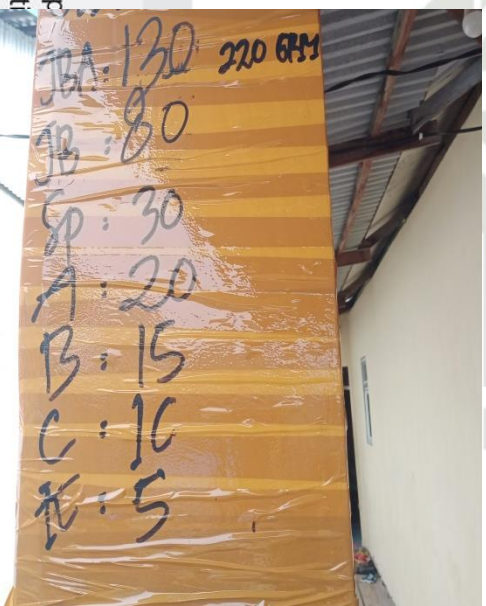 JBA: 130 220 GRM
JB: 80
SP: 30
A: 20
B: 15
C: 10